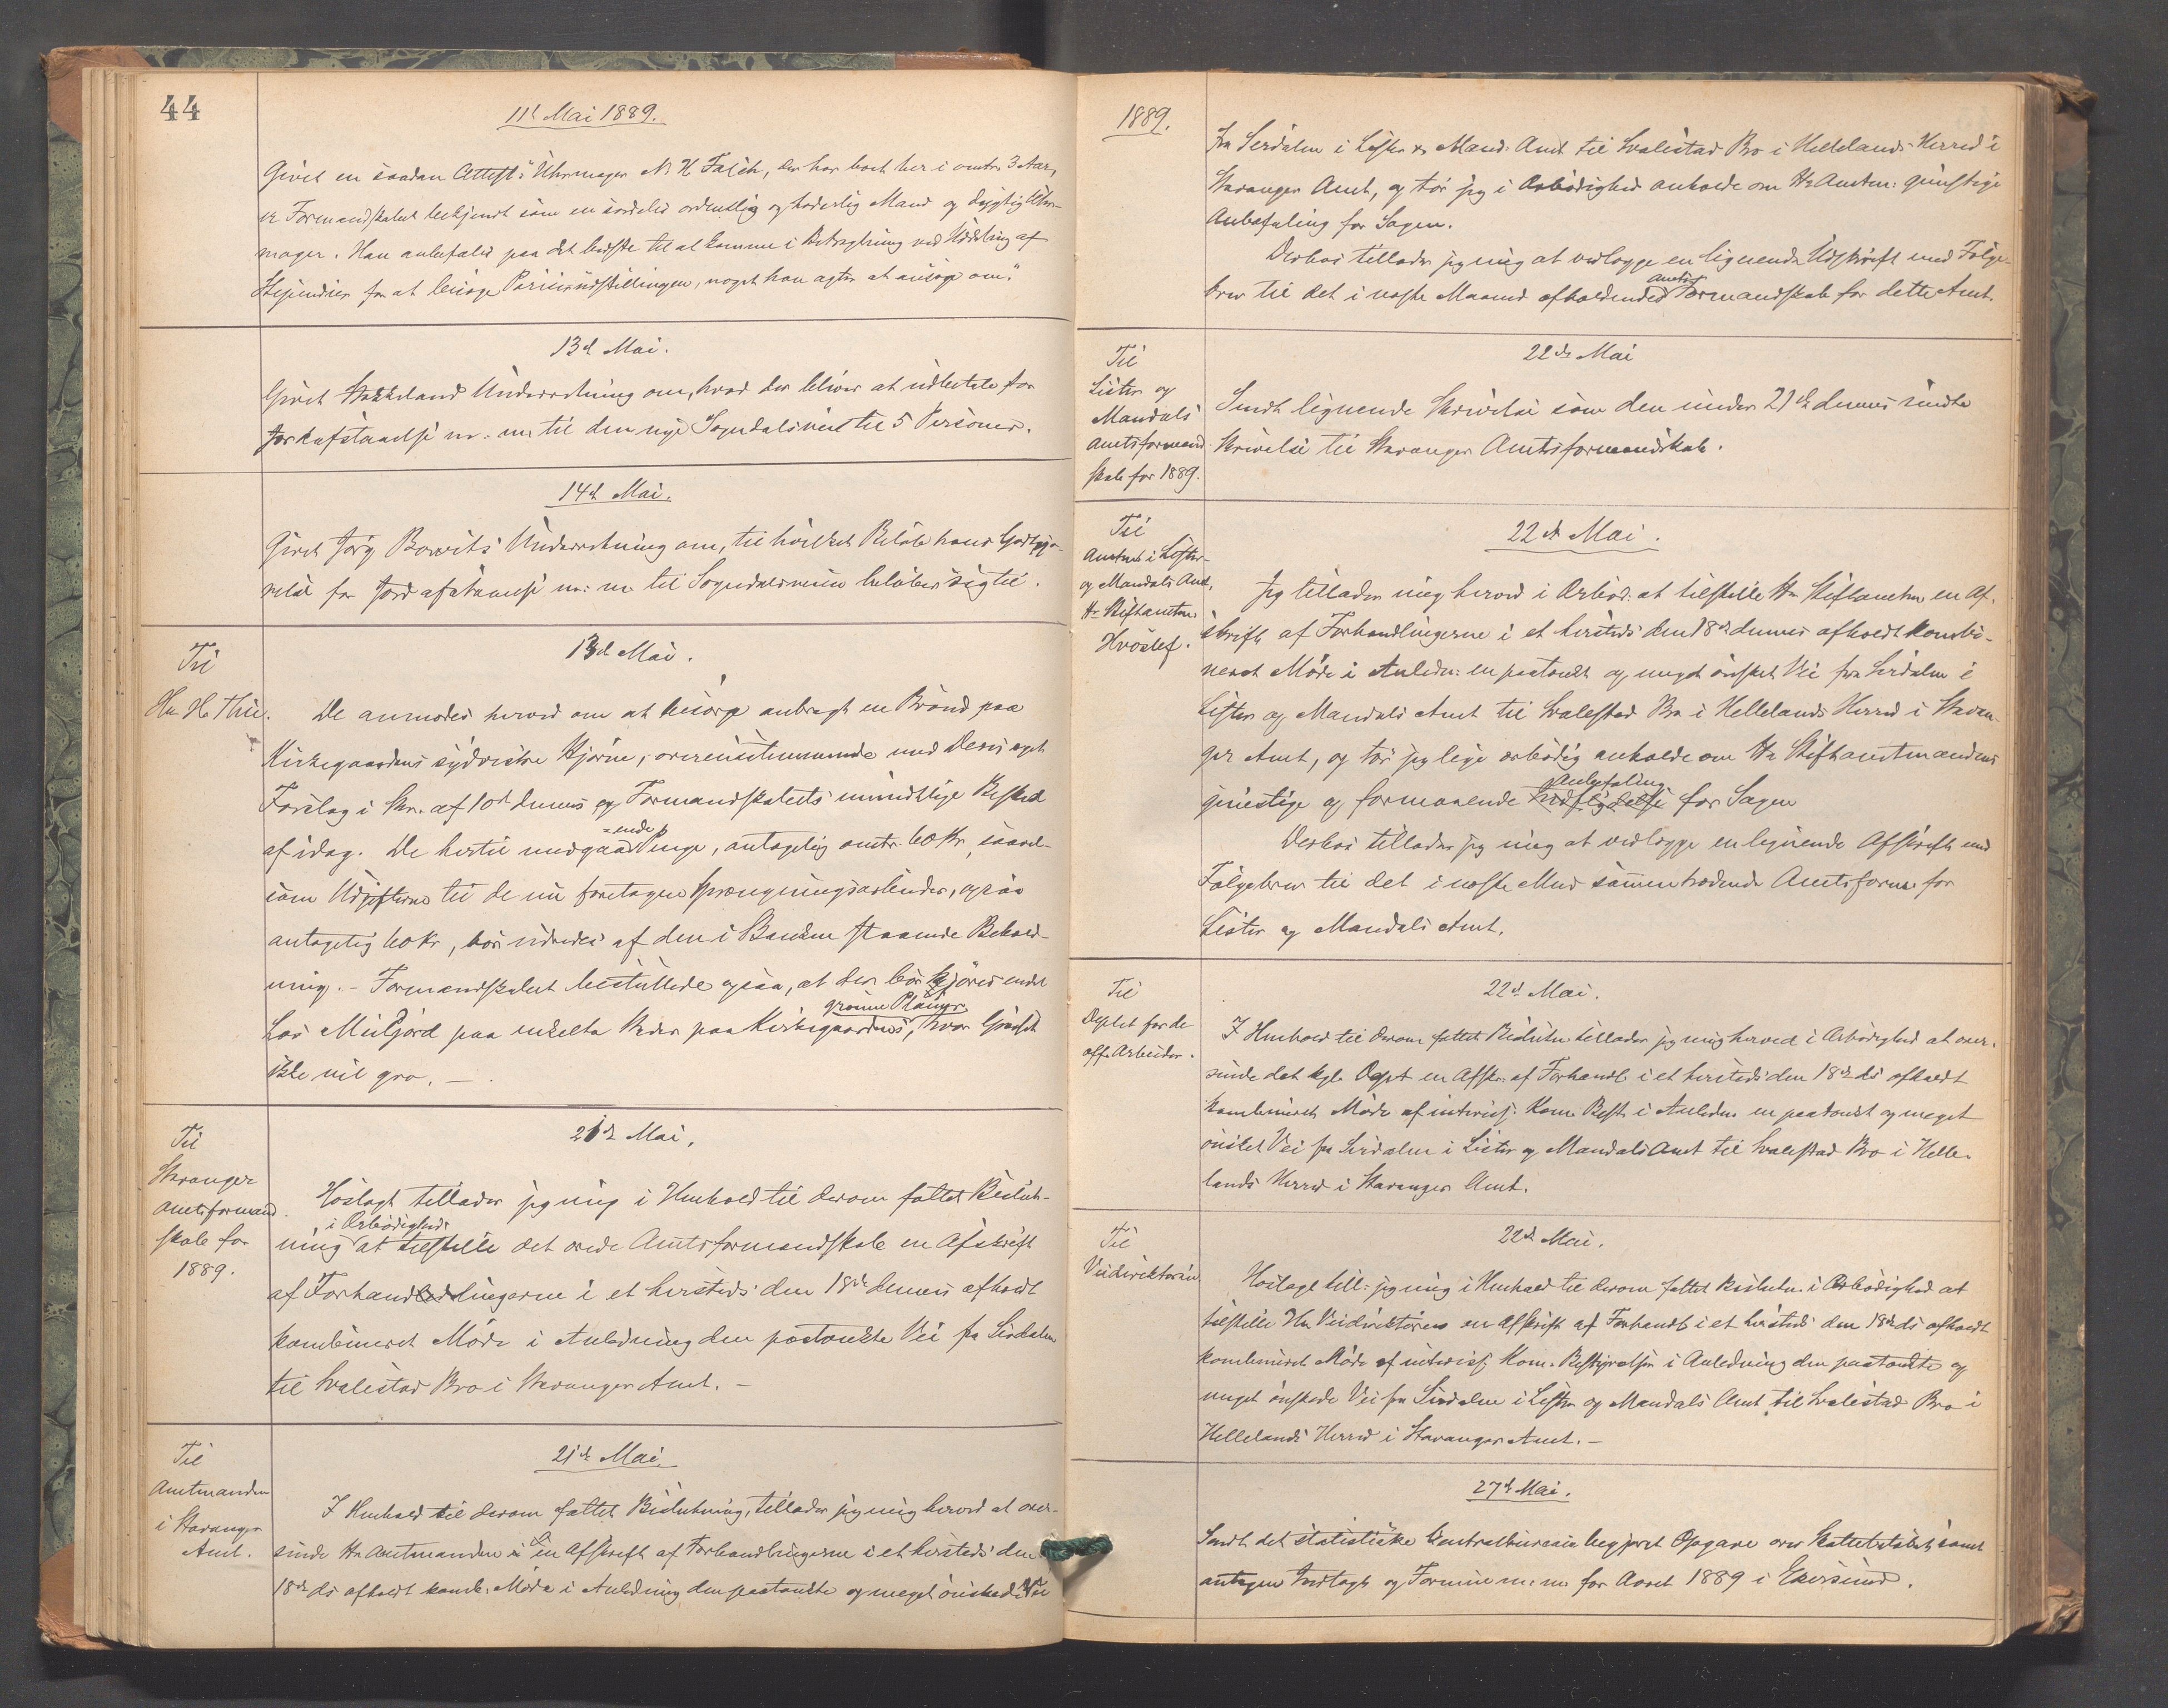 44
11t Mai 1889.
Givet en saadan Attest: "Uhrmager N. H. Falch, der har boet her i omtr. 3 Aar,
er Formandskabet bekjendt som en særdeles ordentlig og hæderlig Mand og dygtig Uhr-
mager. Han anbefales paa det bedste til at komme i Betragtning ved Uddeling af
Stipendier for at besøge Pariserudstillingen, noget han agter at ansøge om."
13d Mai.
Givet Underretning om, hvad der bliver at udbetale for
Jordafstaaelse m: m. til den nye Sogndalsvei til 5 Personer.
14d Mai.
Givet Underretning om, til hvilket Beløb hans Godtgjø-
relse for Jordafstaaelse m: m til Sogndalsveien beløber sig til.
Til
Hr. H. Thu.
13d Mai.
De anmodes herved om at besørge anbragt en Brønd paa
Kirkegaardens sydvestre Hjørne, overensstemmende med Deres eget
Forslag i Skr. af 10d dennes og Formandskabets mundtlige Besked
af idag. De hertil medgaaende Penge, antagelig omtr. 60 Kr., saavel-
som Udgifterne til de nu foretagne Sprængningsarbeider, ogsaa
antagelig 60 Kr, bør udredes af den i Banken staaende Behold-
ning. - Formandskabet besluttede ogsaa, at der bør kjøres endel
Læs Muldjord paa enkelte Steder paa Kirkegaardens grønne Plæner, hvor Græsset
ikke vil gro. -
Til
Stavanger
Amtsformand-
skab for
1889.
21de Mai.
Hoslagt tillader jeg mig i Henhold til derom fattet Beslut-
ning i Ærbødighed at tilstille det ærede Amtsformandskab en Afskrift
af Forhandlingerne i et hersteds den 18de dennes afholdt
kombineret Møde i Anledning den paatænkte Vei fra Sirdalen
til Svalestad Bro i Stavanger Amt. -
Til
Amtmanden
i Stavanger
Amt.
21de Mai.
I Henhold til derom fattet Beslutning, tillader jeg mig herved at over-
sende Hr. Amtmanden en Afskrift af Forhandlingerne i et hersteds den
18de ds afholdt komb: Møde i Anledning den paatænkte og meget ønskede Vei
1889.
fra Sirdalen i Lister & Mand. Amt til Svalestad Bro i Hellelands Herred i
Stavanger Amt, og tør jeg i Ærbødighed anholde om Hr. Amtm: gunstige
Anbefaling for Sagen.
Derhos tillader jeg mig at vedlægge en lignende Udskrift med Følge-
brev til det i næste Maaned afholdendes Amtsformandskab for dette Amt.
Til
Lister og
Mandals
Amtsformand-
skab for 1889.
22de Mai
Sendt lignende Skrivelse som den under 21de dennes sendte
Skrivelse til Stavanger Amtsformandskab.
Til
Amtmd i Lister
og Mandals Amt,
Hr. Stiftamtm.
Hvoslef.
22de Mai.
Jeg tillader mig herved i Ærbød. at tilstille Hr. Stiftamtm en Af-
skrift af Forhandlingerne i et hersteds den 18de dennes afholdt kombi-
neret Møde i Anledn: en paatænkt og meget ønsket Vei fra Sirdalen i
Lister og Mandals Amt til Svalestad Bro i Hellelands Herred i Stavan-
ger Amt, og tør jeg lige ærbødig anholde om Hr. Stiftamtmandens
gunstige og formaaende Indflydelse Anbefaling for Sagen
Derhos tillader jeg mig at vedlægge en lignende Afskrift med
Følgebrev til det i næste Mnd sammentrædende Amtsform. for
Lister og Mandals Amt.
Til
Deptet for de
off. Arbeider.
22d Mai.
I Henhold til derom fattet Beslutn. tillader jeg mig herved i Ærbødighed at over-
sende det kgl. Dept en Afskr. af Forhandl. i et hersteds den 18de ds afholdt
kombineret Møde af interess. Kom. Best. i Anledn. en paatænkt og meget
ønsket Vei fra Sirdalen i Lister og Mandals Amt til Svalestad Bro i Helle-
lands Herred i Stavanger Amt.
Til
Veidirektøren
22de Mai.
Hoslagt till: jeg mig i Henhold til derom fattet Beslutn. i Ærbødighed at
tilstille Hr. Veidirektøren en Afskrift af Forhandl. i et hersteds den 18de ds afholdt
kombineret Møde af interess. Kom. Bestyrelser i Anledning den paatænkte og
meget ønskede Vei fra Sirdalen i Lister og Mandals Amt til Svalestad Bro i
Hellelands Herred i Stavanger Amt. -
27d Mai.
Sendt det statistiske Centralbureau begjæret Opgave over Skattetabel samt
antagen Indtægt og Formue m: m. for Aaret 1889 i Ekersund.